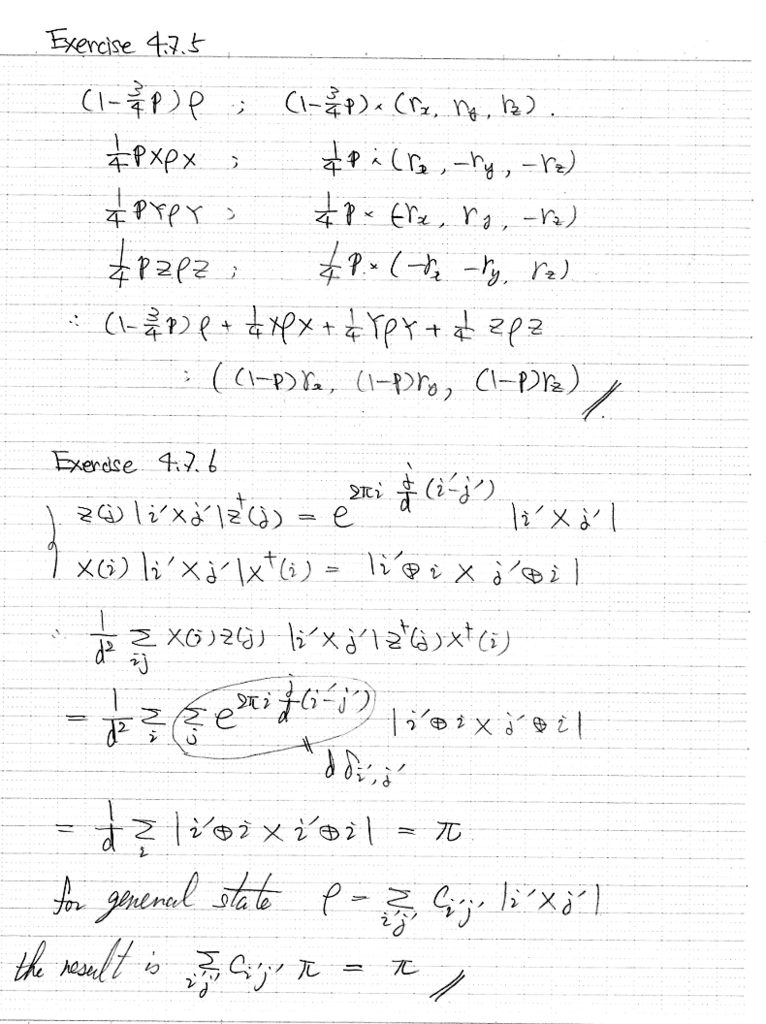 Exercise 4.7.5
(1-3/4 p)ρ ; (1-3/4 p)×(r_x, r_y, r_z).
1/4 pXρX ; 1/4 p×(r_x, -r_y, -r_z)
1/4 pYρY ; 1/4 p×(-r_x, r_y, -r_z)
1/4 pZρZ ; 1/4 p×(-r_x -r_y, r_z)
∴ (1-3/4 p)ρ + 1/4 XρX + 1/4 YρY + 1/4 ZρZ
; ((1-p)r_x, (1-p)r_y, (1-p)r_z) //
Exercise 4.7.6
Z(j)|i'X j'|Z†(j) = e^{2πi j/d (i'-j')} |i'X j'|
X(i)|i'X j'|X†(i) = |i'⊕i X j'⊕i|
∴ 1/d² Σ_{ij} X(i)Z(j) |i'X j'|Z†(j)X†(i)
= 1/d² Σ_i Σ_j e^{2πi j/d (i'-j')} |i'⊕i X j'⊕i|
d δ_{i',j'}
= 1/d Σ_i |i'⊕i X i'⊕i| = π
for general state ρ = Σ_{i'j'} C_{i'j'} |i'X j'|
the result is Σ_{i'j'} C_{i'j'} π = π //